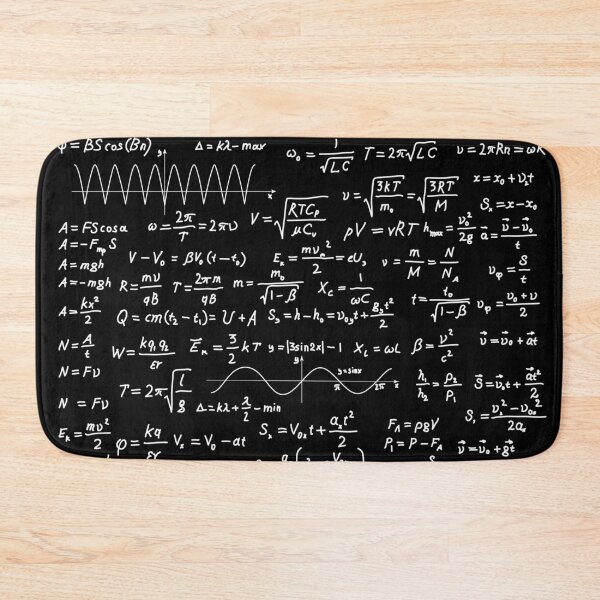 φ = BScos(Bn)   Δ = kλ − max   ω₀ = 1/√LC   T = 2π√LC   υ = 2πRn = ωR
y   x
υ = √(3kT/m₀) = √(3RT/M)   x = x₀ + υₓt
Sₓ = x − x₀
A = FScosα   ω = 2π/T = 2πυ   V = √(RTCₚ/μCᵥ)   pV = νRT   hmax = υ₀²/2g   a⃗ = (υ⃗ − υ⃗₀)/t
A = −FmpS
A = mgh   V − V₀ = βV₀(t − t₀)   Eₖ = mυₐ²/2 = eU₃   ν = m/M = N/N_A   υφ = S/t
A = −mgh   R = mυ/qB   T = 2πm/qB   m = m₀/√(1−β)   X_C = 1/ωC   t = t₀/√(1−β)   υφ = (υ₀ + υ)/2
A = kx²/2   Q = cm(t₂ − t₁) = U + A   Sₓ = h − h₀ = υ₀ᵧt + gₓt²/2
N = A/t   W = kq₁q₂/εr   Ēₖ = 3/2 kT   y = |3sin2x| − 1   X_L = ωL   β = υ²/c²   υ⃗ = υ⃗₀ + a⃗t
N = Fυ   T = 2π√(l/g)   y   y = sinx   π   2π   x   h₁/h₂ = ρ₂/ρ₁   S⃗ = υ⃗ₓt + a⃗t²/2
N = Fυ   Δ = kλ + λ/2 − min   Sₓ = (υₓ² − υ₀ₓ²)/2aₓ
Eₖ = mυ²/2   φ = kq/εr   Vₓ = V₀ − at   Sₓ = V₀ₓt + aₓt²/2   F_A = ρgV
P₁ = P − F_A   υ⃗ = υ⃗₀ + g⃗t